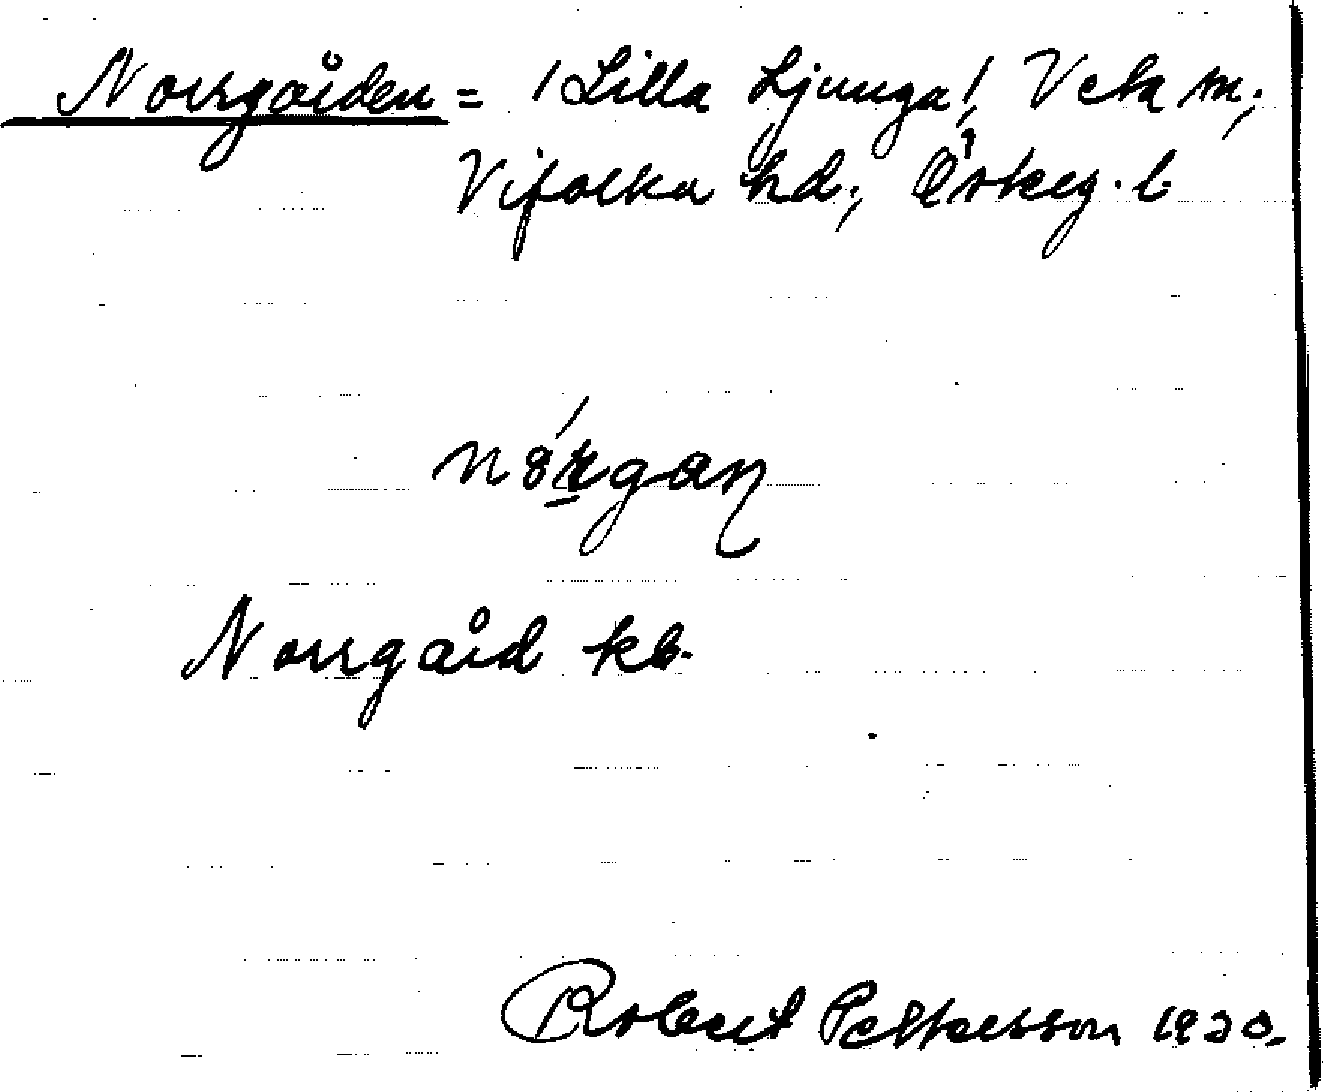 Norrgården = /Lilla Ljunga/, Veta sn;
Vifolka hd; Österg. l.
nǿrgaɳ
Norrgård kb.
Robert Pettersson 1930.